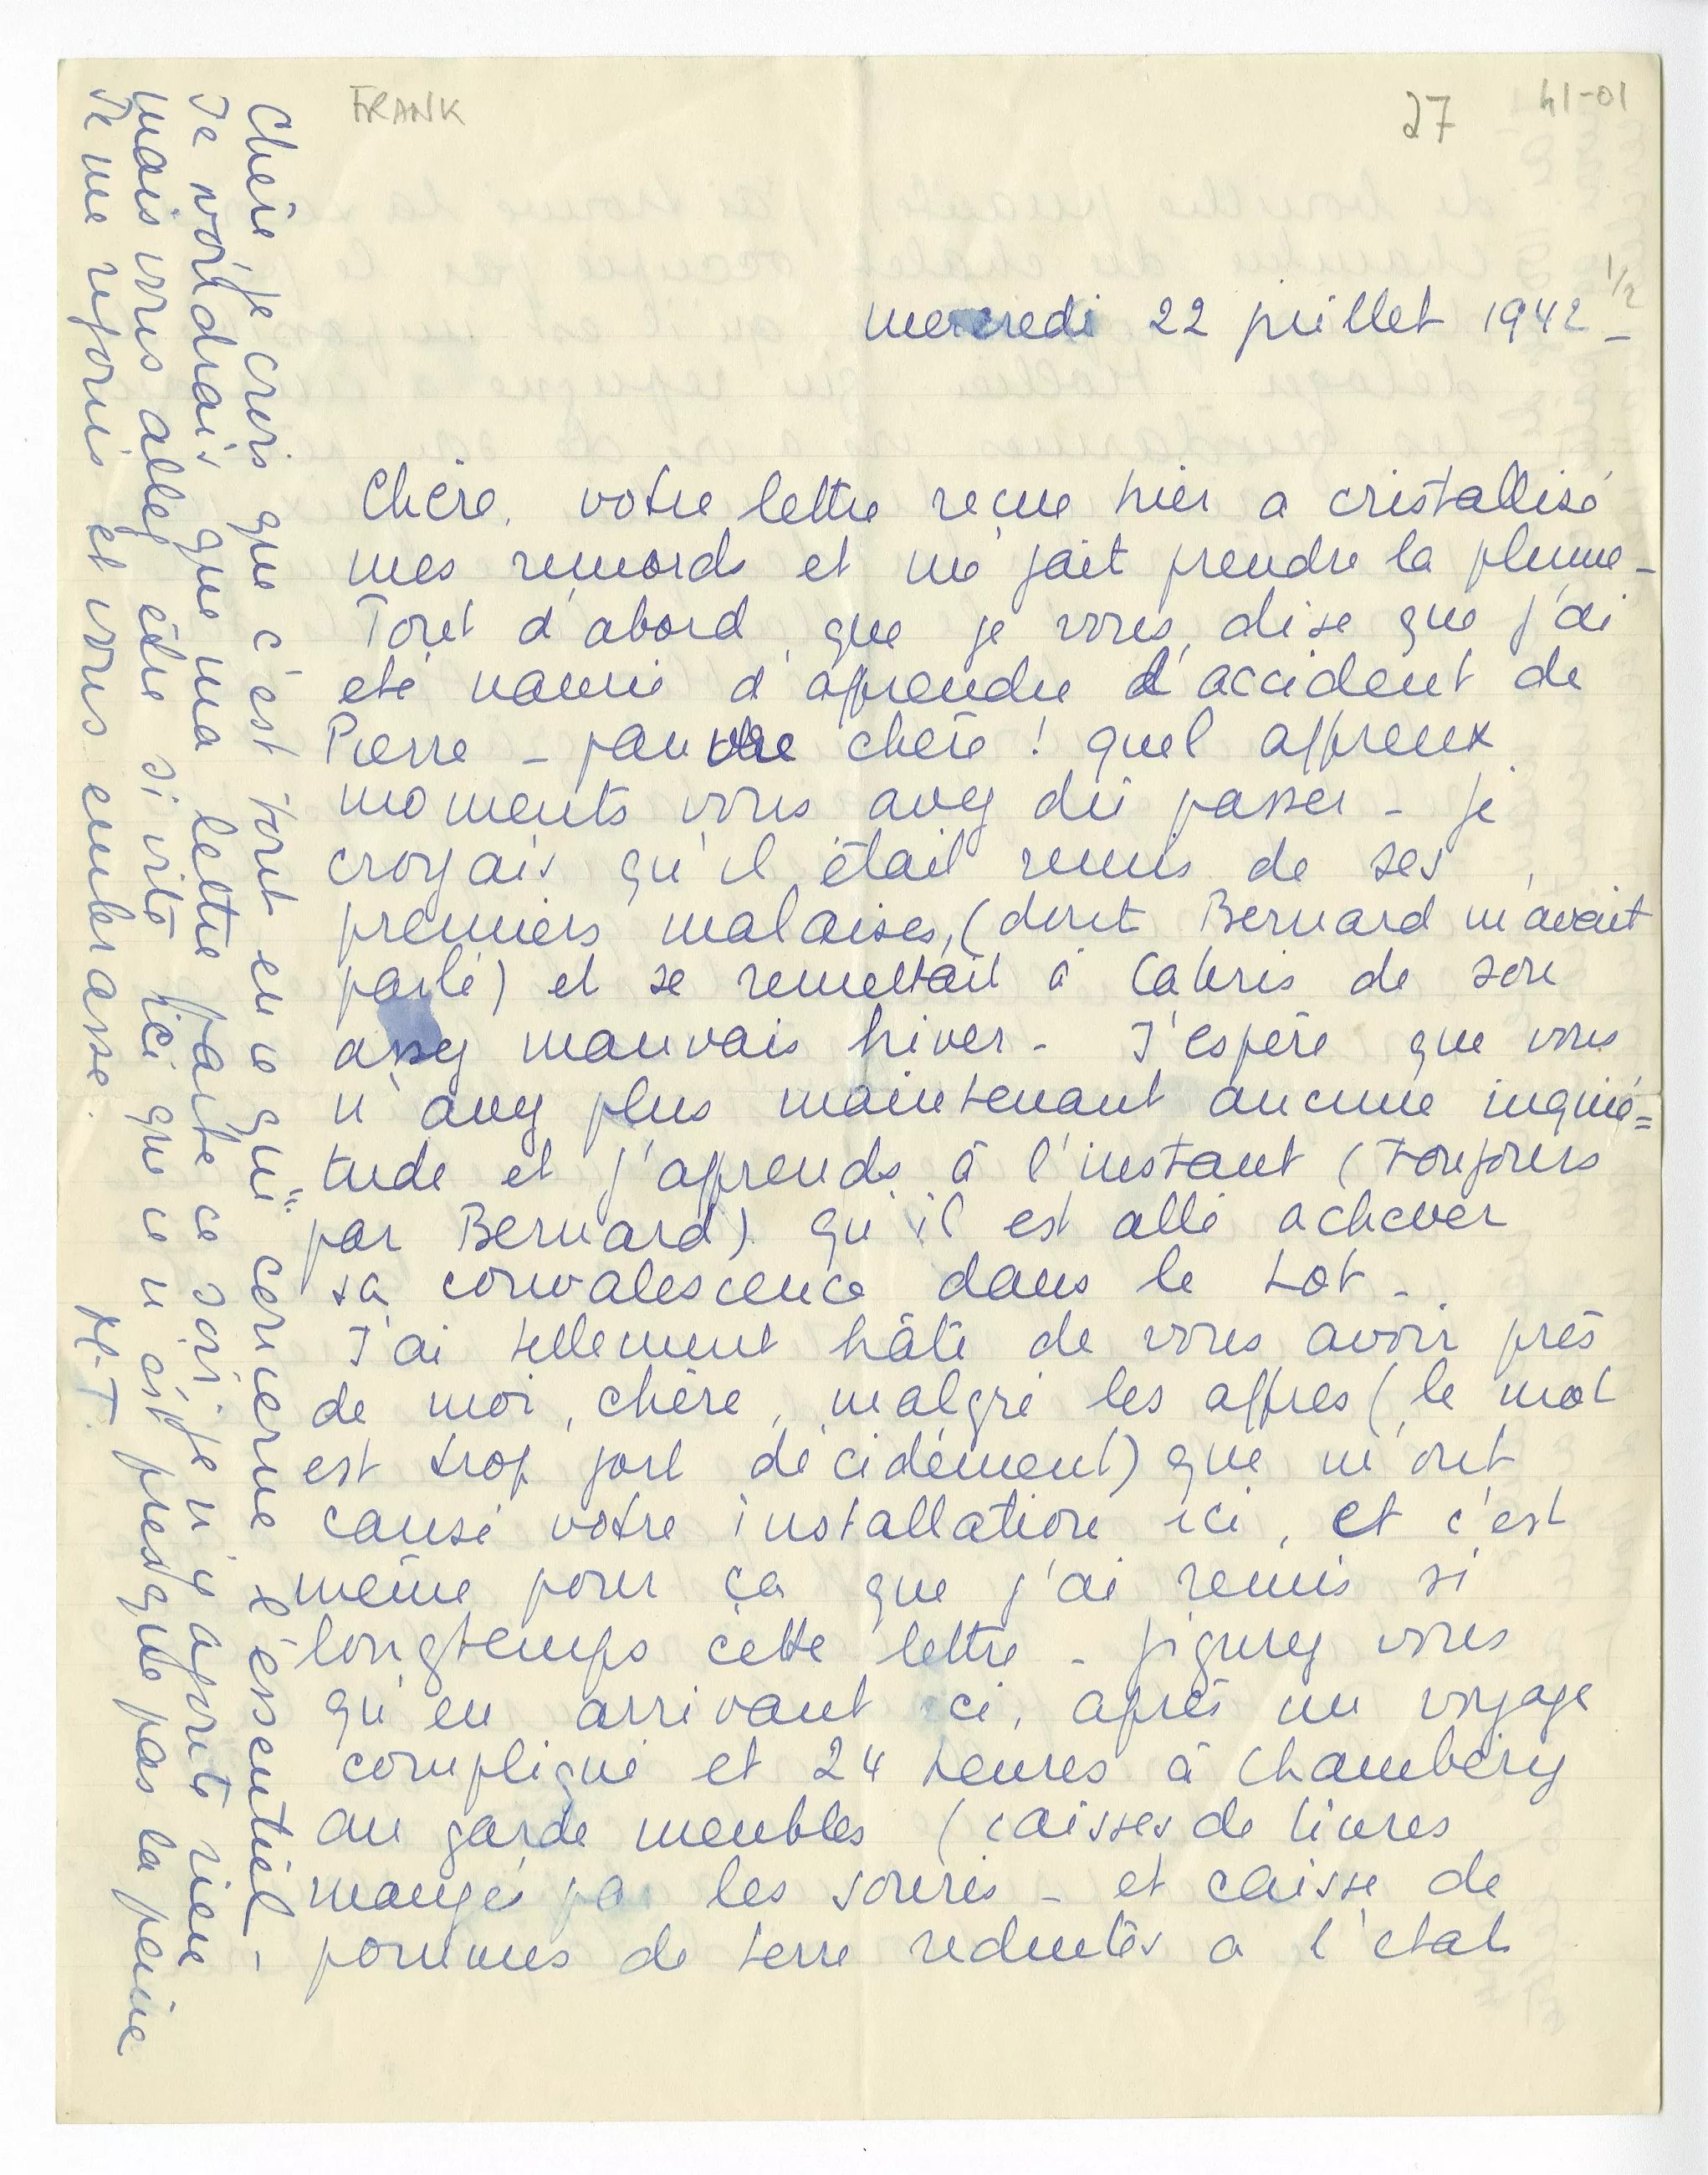 FRANK
27
41-01
1/2
mercredi 22 juillet 1942 -
Chère, votre lettre reçue hier a cristallisé
mes remords et me fait prendre la plume -
Tout d'abord, que je vous dise que j'ai
été navrée d'apprendre l'accident de
Pierre - pauvre chère ! quel affreux
moments vous avez dû passer - je
croyais qu'il était remis de ses
premiers malaises, (dont Bernard m'avait
parlé) et se remettait à Cabris de son
assez mauvais hiver - J'espère que vous
n'avez plus maintenant aucune inquié=
tude et j'apprends à l'instant (toujours
par Bernard) qu'il est allé achever
sa convalescence dans le Lot -
J'ai tellement hâte de vous avoir près
de moi, chère, malgré les affres (le mot
est trop fort décidément) que m'ont
causé votre installation ici, et c'est
même pour ça que j'ai remis si
longtemps cette lettre - figurez vous
qu'en arrivant ici, après un voyage
compliqué et 24 heures à Chambéry
au garde meubles (caisses de livres
mangés par les souris - et caisse de
pommes de terre reduites a l'état
Chère je crois que c'est tout en ce qui concerne l'éssentiel -
Je voudrais que ma lettre parte ce soir, je n'y ajoute rien
mais vous allez être si vite ici que ce n'est presque pas la peine
Je me réjouis et vous embrasse.
M.T.